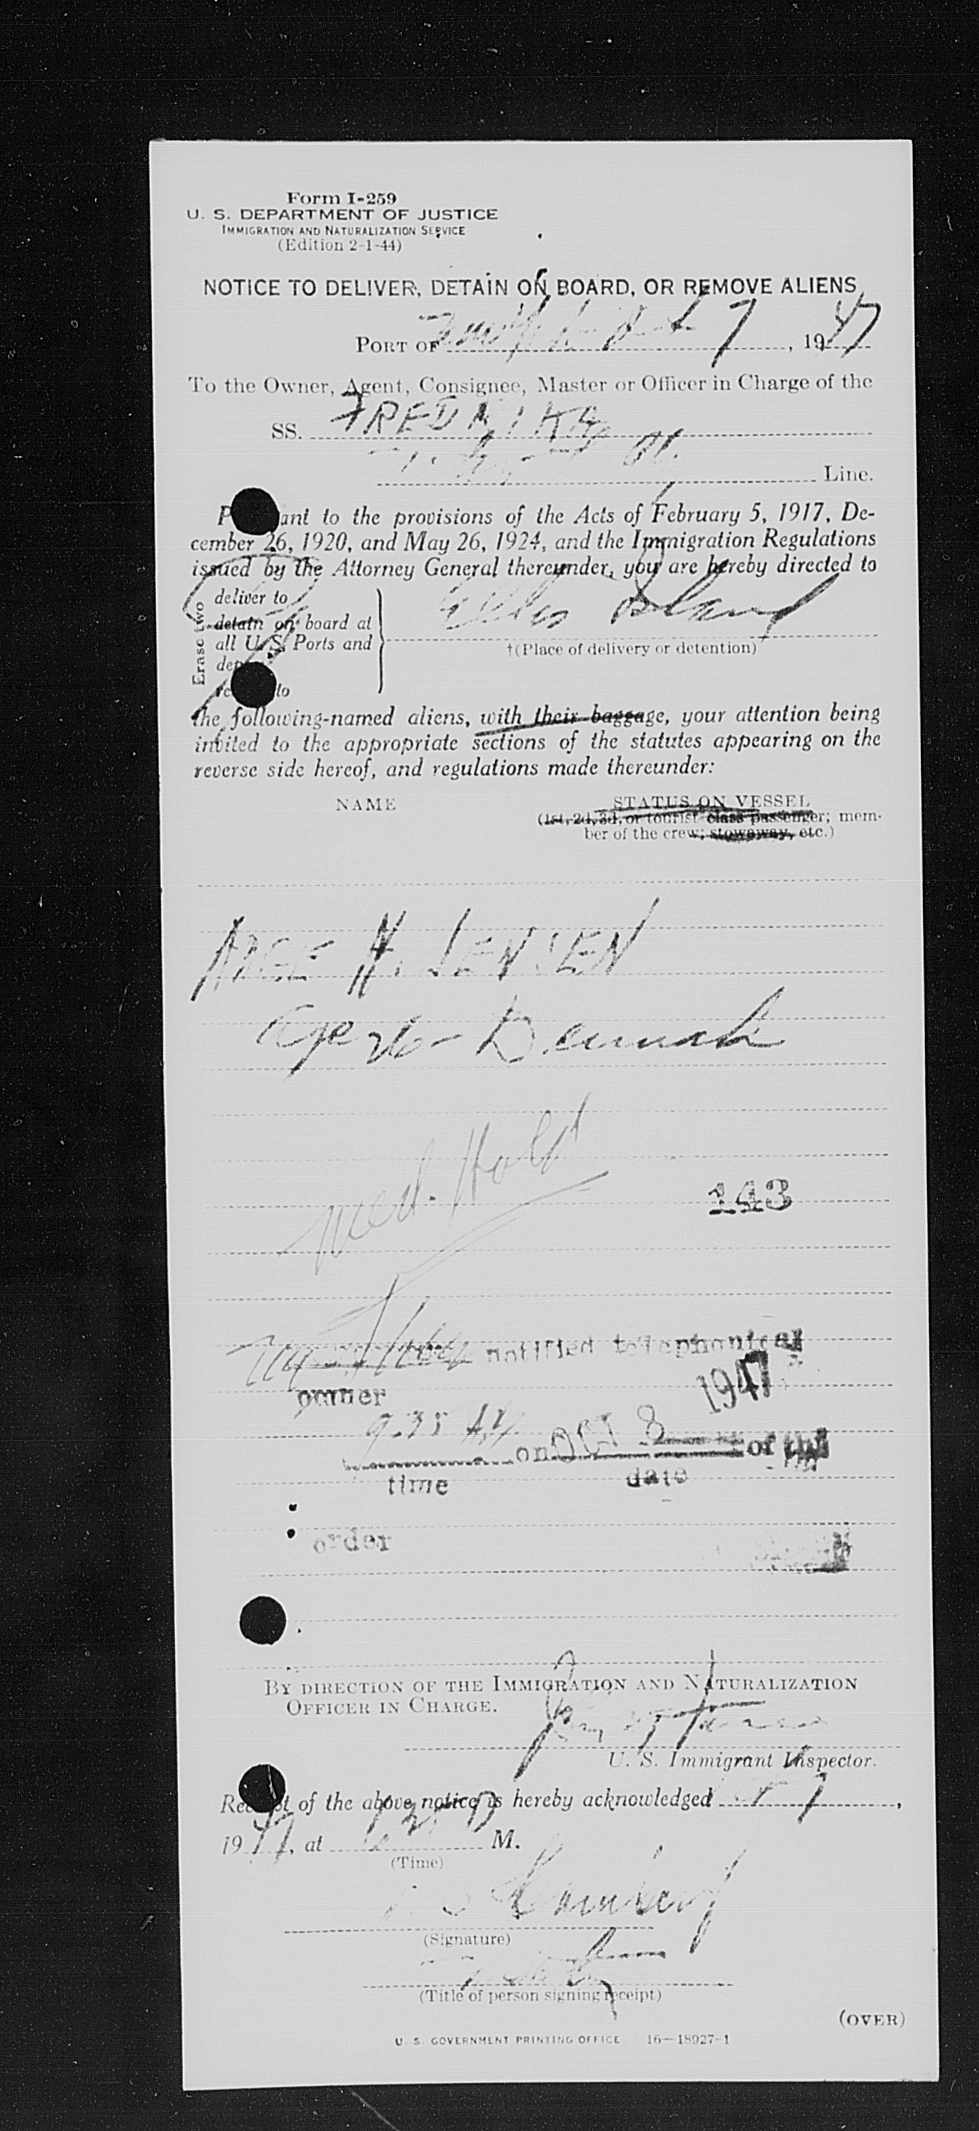 Form I-259
U. S. DEPARTMENT OF JUSTICE
IMMIGRATION AND NATURALIZATION SERVICE
(Edition 2-1-44)
NOTICE TO DELIVER, DETAIN ON BOARD, OR REMOVE ALIENS
PORT OF 7, 1947
To the Owner, Agent, Consignee, Master or Officer in Charge of the
SS. FREDRIKA
Line.
P ant to the provisions of the Acts of February 5, 1917, De-
cember 26, 1920, and May 26, 1924, and the Immigration Regulations
issued by the Attorney General thereunder, you are hereby directed to
Erase two
deliver to
detain on board at
all U. S. Ports and
de
re to
Ellis Island
†(Place of delivery or detention)
the following-named aliens, with their baggage, your attention being
invited to the appropriate sections of the statutes appearing on the
reverse side hereof, and regulations made thereunder:
NAME
STATUS ON VESSEL
(1st, 2d, 3d, or tourist class passenger; mem-
ber of the crew; stowaway, etc.)
AAGE H. JENSEN
Age Denmark
Med. Hold
143
notified telephonical
owner
1947
9:35 AM on OCT 8 of the
time date
order
BY DIRECTION OF THE IMMIGRATION AND NATURALIZATION
OFFICER IN CHARGE.
U. S. Immigrant Inspector.
Rec t of the above notice is hereby acknowledged 7,
1947, at M.
(Time)
(Signature)
(Title of person signing receipt)
(OVER)
U. S. GOVERNMENT PRINTING OFFICE 16—18927-1